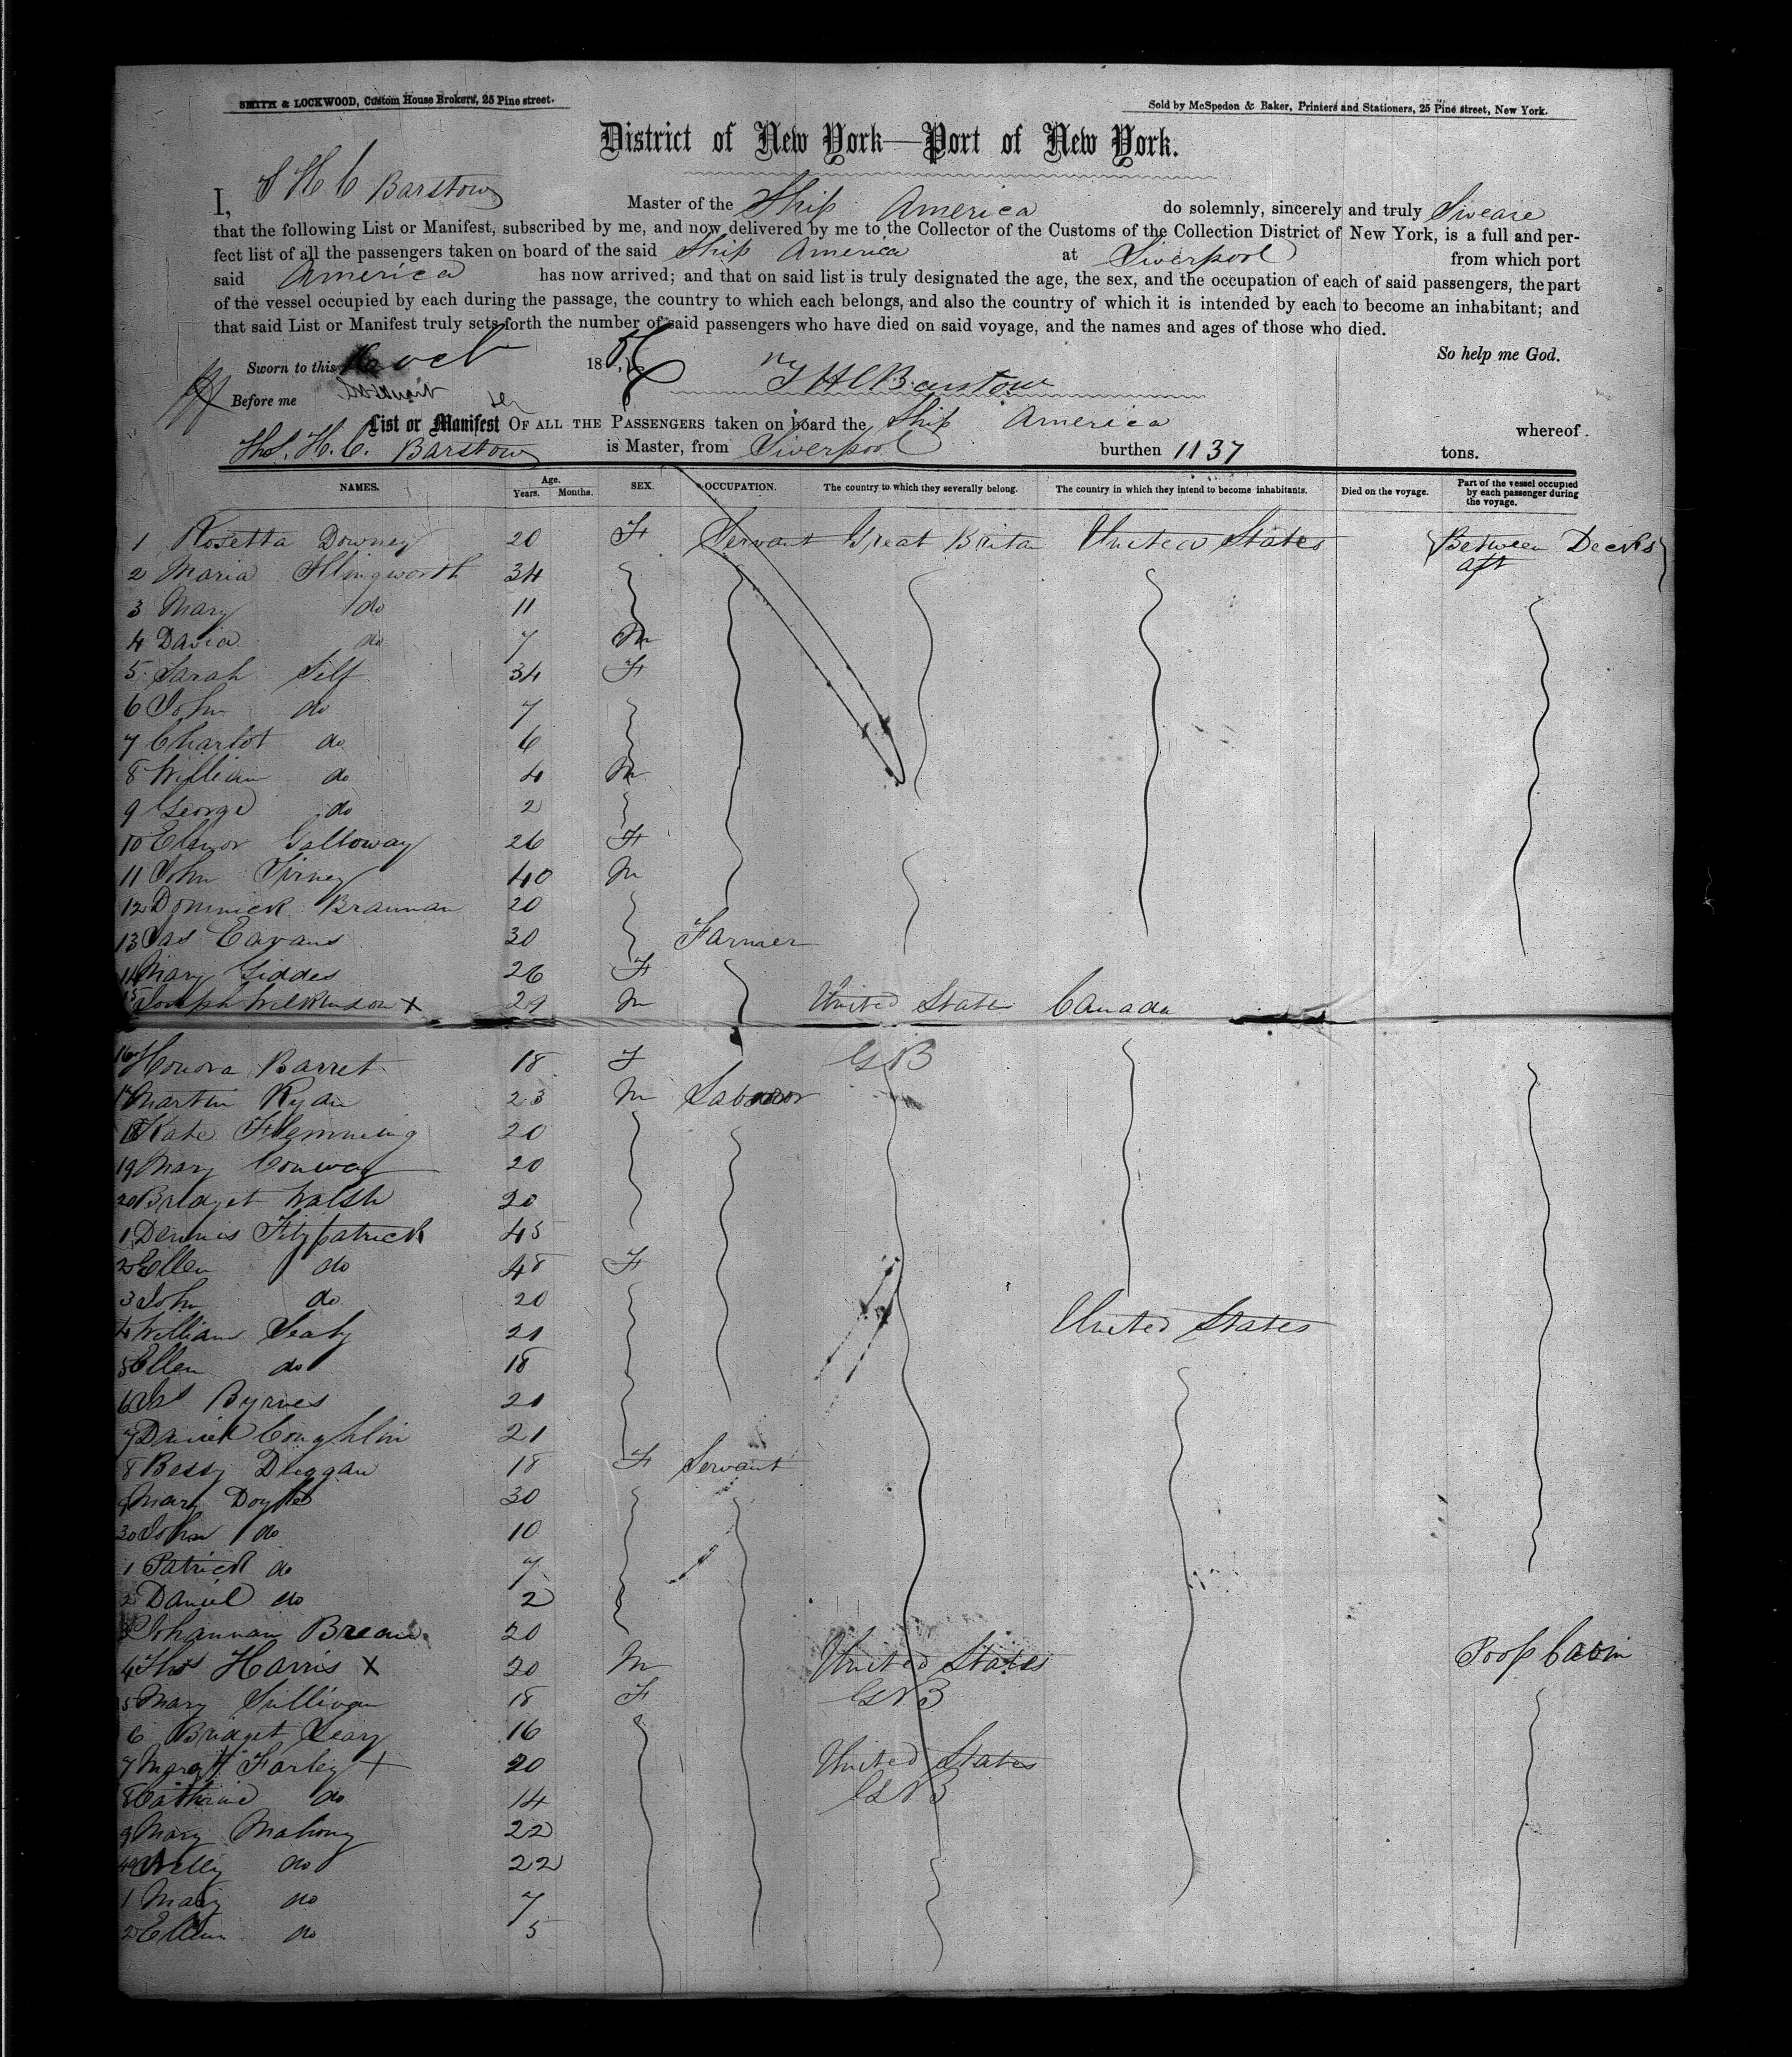 SMITH & LOCKWOOD, Custom House Brokers, 25 Pine street.
Sold by McSpedon & Baker, Printers and Stationers, 25 Pine street, New York.
District of New York—Port of New York.
I, T H C Barstow Master of the Ship America do solemnly, sincerely and truly Sweare
that the following List or Manifest, subscribed by me, and now delivered by me to the Collector of the Customs of the Collection District of New York, is a full and per-
fect list of all the passengers taken on board of the said Ship America at Liverpool from which port
said America has now arrived; and that on said list is truly designated the age, the sex, and the occupation of each of said passengers, the part
of the vessel occupied by each during the passage, the country to which each belongs, and also the country of which it is intended by each to become an inhabitant; and
that said List or Manifest truly sets forth the number of said passengers who have died on said voyage, and the names and ages of those who died.
So help me God.
Sworn to this Oct 185
T H C Barstow
Before me
List or Manifest OF ALL THE PASSENGERS taken on board the Ship America whereof
Thos. H. C. Barstow is Master, from Liverpool burthen 1137 tons.
NAMES. Age. Years. Months. SEX. OCCUPATION. The country to which they severally belong. The country in which they intend to become inhabitants. Died on the voyage. Part of the vessel occupied by each passenger during the voyage.
1 Rosetta Downey 20 F Servant Great Britan United States Between Decks aft
2 Maria Illingworth 34
3 Mary do 11
4 David do 7 M
5 Sarah Self 34 F
6 John do 7
7 Charlot do 6
8 William do 4 M
9 George do 2
10 Elenor Galloway 26 F
11 John Tirney 40 M
12 Dominick Brannan 20
13 Jas Eavans 30 Farmer
14 Mary Giddes 26 F
15 Joseph Wilkinson X 29 M United State Canada
16 Honora Barret 18 F G B
17 Martin Ryan 23 M Labour
18 Kate Flemming 20
19 Mary Conway 20
20 Bridget Walsh 20
1 Dennis Fitzpatrick 45
2 Ellen do 48 F
3 John do 20
4 William Sealy 21 United States
5 Ellen do 18
6 Jas Byrnes 21
7 Daniel Coughlin 21
8 Bessy Duggan 18 F Servant
9 Mary Doyle 30
30 John do 10
1 Patrick do 7
2 Daniel do 2
3 Johannan 20
4 Thos Harris X 20 M United States Poop Cabin
5 Mary Sullivan 18 F G B
6 Bridget Leary 16
7 Margt Farley X 20 United States
8 Cathrine do 14 G B
9 Mary Mahony 22
40 Nelly do 22
1 Mary do 7
2 Ellen do 5